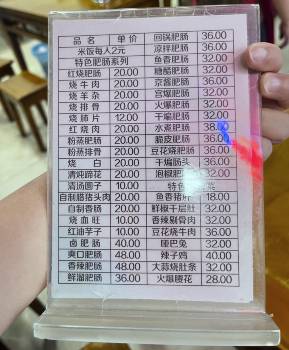 品 名 单 价 回锅肥肠 36.00
米饭每人2元 凉拌肥肠 36.00
特色肥肠系列 鱼香肥肠 32.00
红烧肥肠 20.00 糖醋肥肠 32.00
烧牛肉 20.00 京酱肥肠 36.00
烧羊杂 20.00 宫爆肥肠 32.00
烧排骨 20.00 火爆肥肠 32.00
烧肺片 12.00 干煸肥肠 32.00
红烧肉 20.00 水煮肥肠 38.00
粉蒸肥肠 20.00 脆皮肥肠 36.00
粉蒸排骨 20.00 豆花肥肠 36.00
烧 白 20.00 干煸肠头 36.00
清炖蹄花 20.00 泡椒肥肠 32.00
清汤圆子 10.00 特色
自制腊猪头肉 20.00 鱼香猪肝 18.00
自制香肠 20.00 鲜椒千层肚 32.00
烧血旺 10.00 香辣剔骨肉 32.00
红油芋子 10.00 豆花烧牛肉 36.00
卤肥肠 40.00 哑巴兔 32.00
爽口肥肠 48.00 辣子鸡 40.00
香辣肥肠 48.00 大蒜烧肚条 32.00
鲜溜肥肠 36.00 火爆腰花 28.00